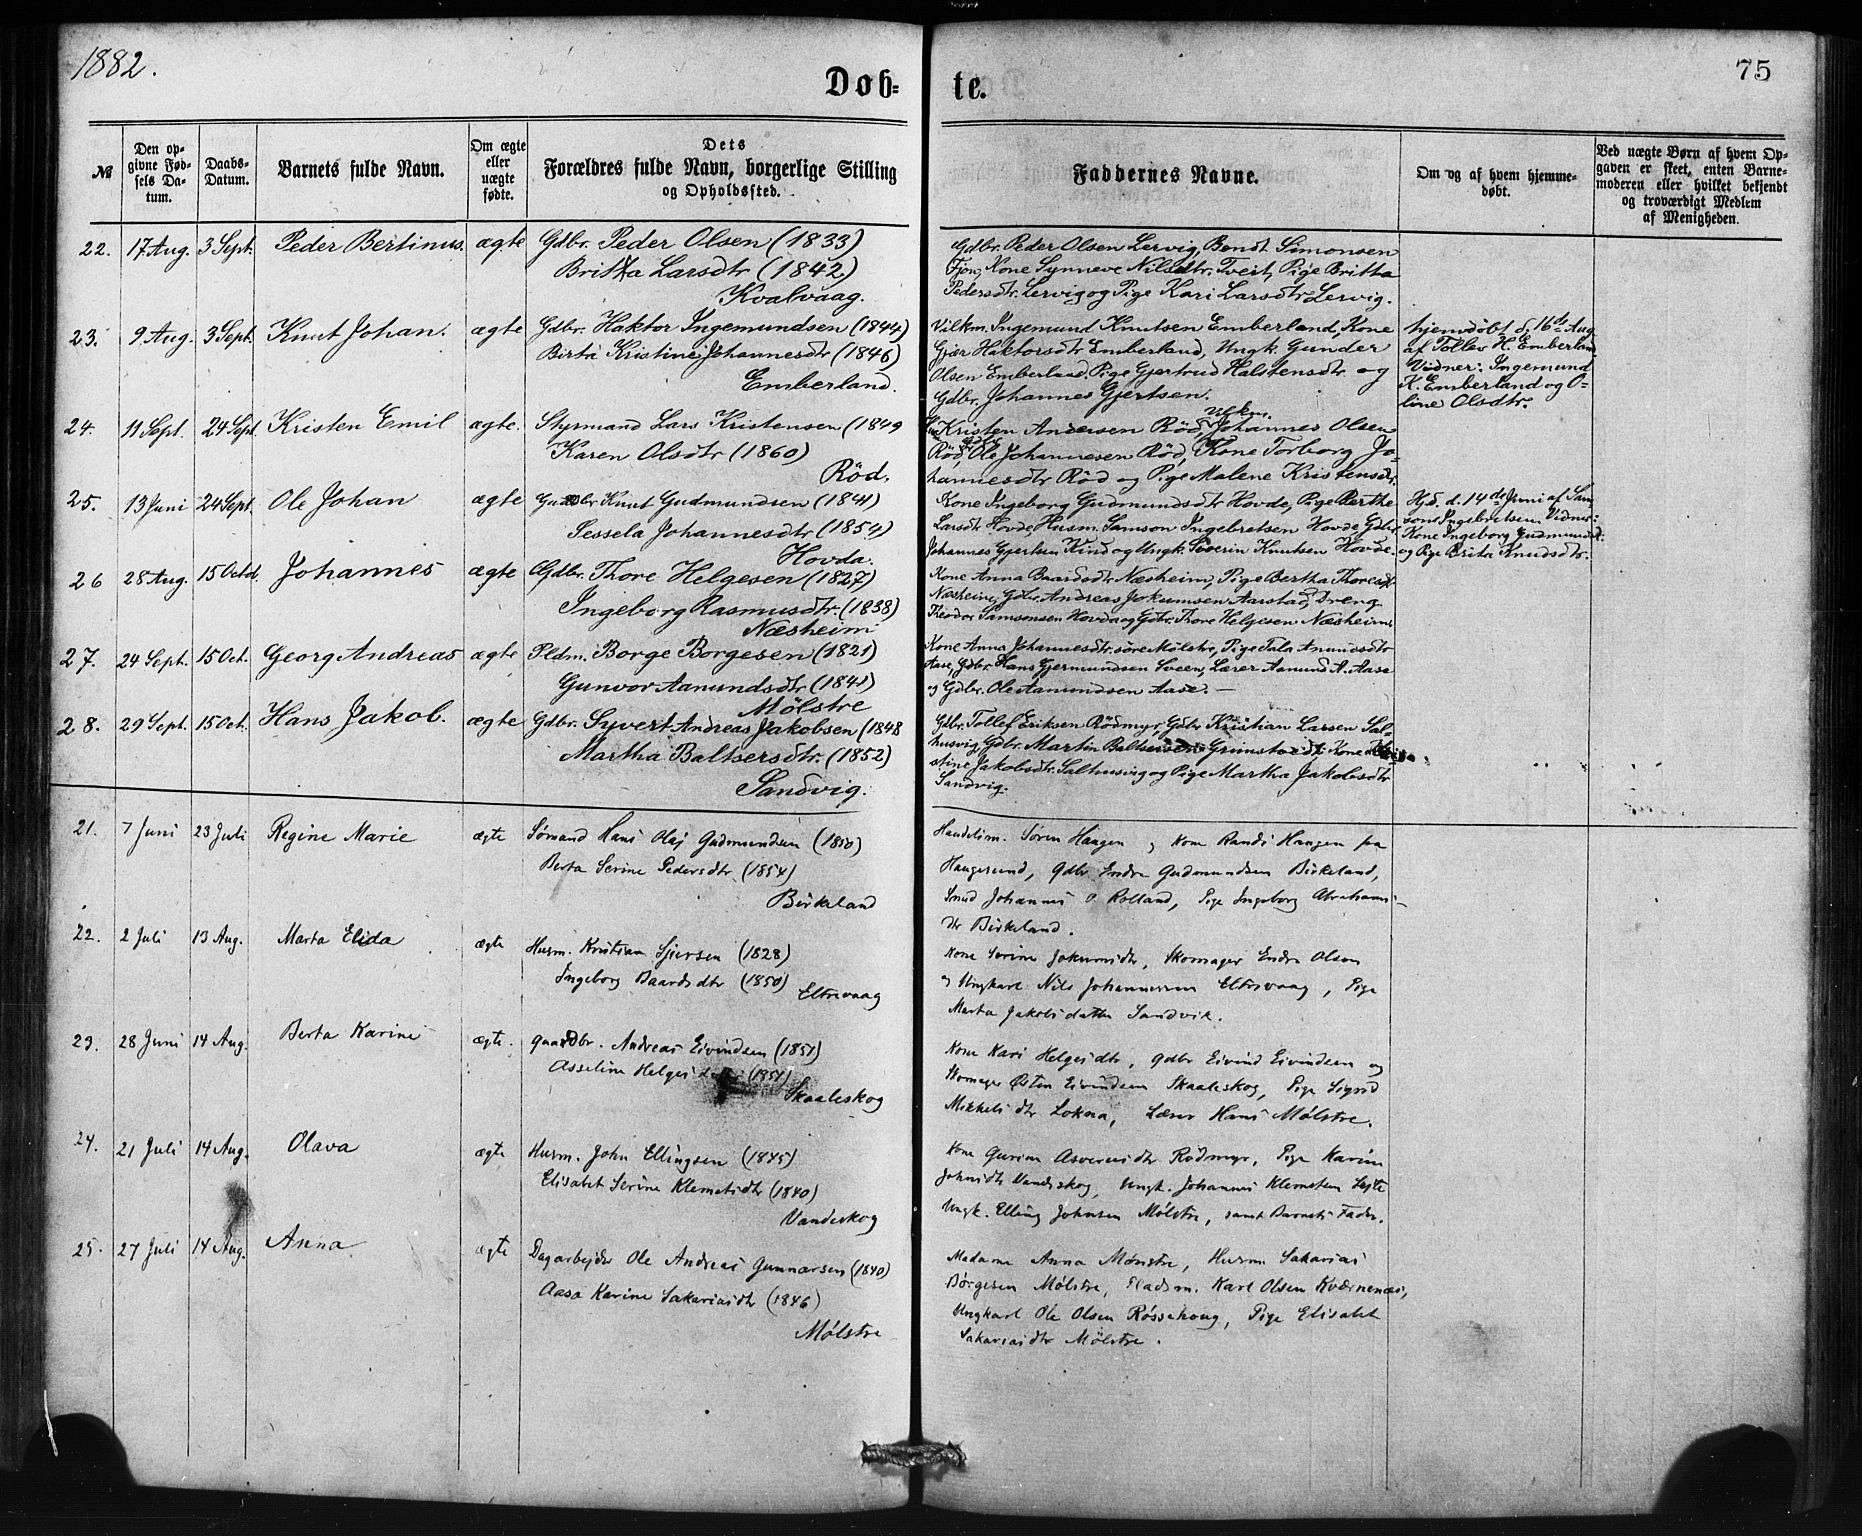 1882.
Døb-
te.
75
№
Den opgivne Fødsels Datum.
Daabs-Datum.
Barnets fulde Navn.
Om ægte eller uægte fødte.
Dets Forældres fulde Navn, borgerlige Stilling og Opholdssted.
Faddernes Navne.
Om og af hvem hjemmedøbt.
Ved uægte Børn af hvem Opgaven er skeet, enten Barnemoderen eller hvilket bekjendt og troværdigt Medlem af Menigheden.
22. 17 Aug. 3 Sept. Peder Bertinus. ægte Gdbr. Peder Olsen (1833)
Britta Larsdtr (1842)
Kvalvaag.
Gdbr. Peder Olsen Lervig, Bendt Simonsen
Fjon, Kone Synneve Nilsdtr. Tveit, Pige Britha
Pedersdtr. Lervig og Pige Kari Larsdtr Lervig.
23. 9 Aug. 3 Sept. Knut Johan. ægte Gdbr. Haktor Ingemundsen (1844)
Birta Kristine Johannesdtr (1846)
Emberland.
Vilkm. Ingemund Knutsen Emberland, Kone
Gjær Haktorsdtr Emberland, Ungk. Gunder
Olsen Emberland. Pige Gjertrud Halstensdtr og
Gdbr. Johannes Gjertsen.
hjemdøbt d. 16de Aug.
af Tollev H. Emberland
Vidner: Ingemund
K. Emberland og O-
line Olsdtr.
24. 11 Sept. 24 Sept. Kristen Emil ægte. Styrmand Lars Kristensen (1849
Karen Olsdtr (1860)
Röd.
Kristen Andersen Röd, Vilkm. Johannes Olsen
Röd, Ole Johannesen Röd, Kone Torborg Jo-
hannesdtr Röd og Pige Malene Kristensdtr.
25. 13 Juni 24 Sept. Ole Johan ægte Knut Gudmundsen (1841)
Sessela Johannesdtr (1854)
Hovda.
Kone Ingeborg Gudmundsdtr Hovde, Pige Berthe
Larsdtr Hovde, Husm. Samson Ingebretsen Hovde, Gdbr.
Johannes Gjertsen Kind og Ungk. Severin Knutsen Hovde.
Hjd. d. 14de Juni af Sam-
son Ingebretsen. Vidner:
Kone Ingeborg Gudmundsd.
og Pige Brita Knudsdtr.
26 28 Aug. 15 Octob. Johannes ægte Gdbr. Thore Helgesen (1827)
Ingeborg Rasmusdtr. (1838)
Næsheim
Kone Anna Baardsdtr Næsheim, Pige Bertha Thoresdt
Næsheim, Gdbr. Andreas Jokumsen Aarstad, Dreng
Theodor Samsonsen Hovda og Gdbr. Thore Helgesen Næsheim.
27. 24 Sept. 15 Oct. Georg Andreas ægte Pldm. Borge Borgesen (1821)
Gunvor Aamundsdtr (1841)
Mölstre
Kone Anna Johannesdtr. söre Mölstre, Pige Tala Amundsdtr
Aase, Gdbr. Hans Gjermundsen Sveen, Lærer Aamund A. Aase
og Gdbr. Ole Aamundsen Aase. —
28. 29 Sept. 15 Oct. Hans Jakob. ægte Gdbr. Syvert Andreas Jakobsen (1848
Martha Baltsersdtr. (1852)
Sandvig.
Gdbr. Tollef Eriksen Rödmyr, Gdbr Kristian Larsen Sal-
husvig, Gdbr. Martin Baltsersen Kone
stine Jakobsdtr. Salhusvig og Pige Martha Jakobsdtr
Sandvig.
21. 7 Juni 23 Juli Regine Marie ægte Sømand Hans Olaj Gudmundsen (1850)
Berta Serine Pedersdtr (1854)
Birkeland
Handelsm. Søren Haagen og Kone Randi Haagen fra
Haugesund, Gdbr Endre Gudmundsen Birkeland,
Smed Johannes O Rolland, Pige Ingeborg Abrahams-
dtr Birkeland.
22. 2 Juli 13 Aug. Marta Elida ægte Husm. Kristian Sjursen (1828)
Ingeborg Baardsdtr (1850)
Eltrevaag
Kone Serine Jokumsdtr, Skomager Endre Olsen
og Ungkarl Nils Johannessen Eltrevaag, Pige
Marta Jakobsdatter Sandvik.
23. 28 Juni 14 Aug. Berta Karine ægte. Gaardbr. Andreas Eivindsen (1851)
Asseline Helges (1851)
Skaaleskog
Kone Kari Helgesdtr, Gdbr Eivind Eivindsen og
Skomager Østen Eivindsen Skaaleskog, Pige Sigrid
Mikkelsdtr Lokna, Lærer Hans Mølstre.
24. 21 Juli 14 Aug. Olava ægte Husm. John Ellingsen (1845)
Elisabet Serine Klemetsdtr (1840)
Vandeskog
Kone Gurine Asversdtr Rødmyr, Pige Karine
Johnsdtr Vandeskog, Ungk. Johannes Klemetsen
Ungk. Elling Johnsen Mølstre, samt Barnets Fader.
25. 27 Juli 14 Aug. Anna ægte Dagarbejder Ole Andreas Gunnarsen (1840)
Aasa Karine Sakariasdtr (1846)
Mølstre
Madame Anna Mønstre, Husm Sakarias
Børgesen Mølstre, Pladsm. Karl Olsen Kværnenæs,
Ungkarl Ole Olsen Røssehoug, Pige Elisabet
Sakariasdtr Mølstre.